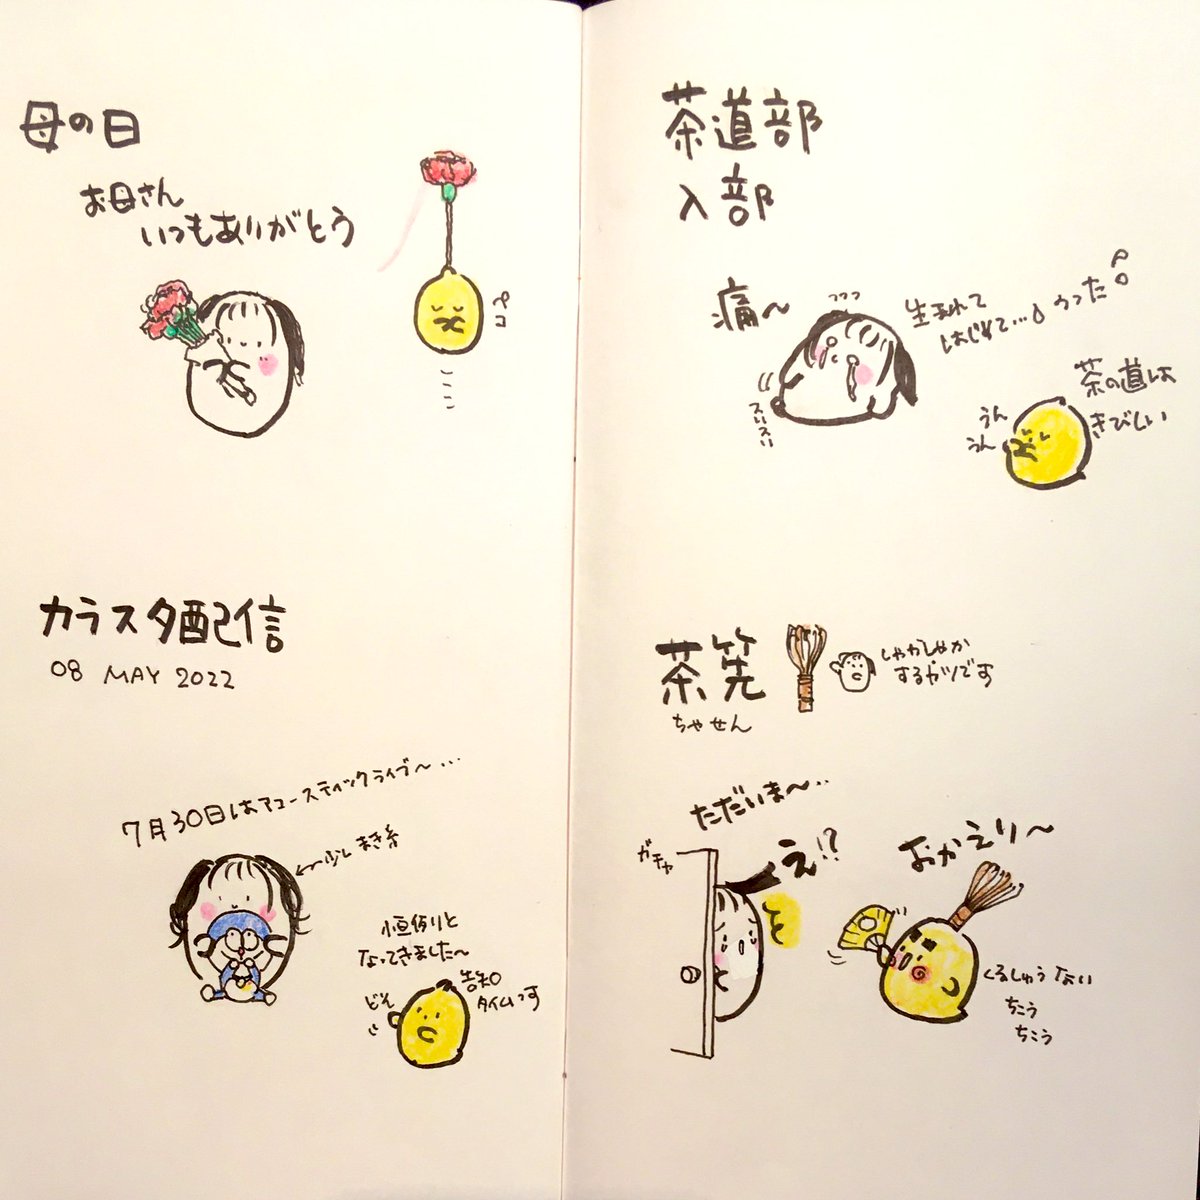 母の日
お母さん
いつもありがとう
ペコ
カラスタ配信
08 MAY 2022
7月30日はアコースティックライブ〜...
少しまき糸
恒例りと
なってきました〜
告知
タイムっす
どん
茶道部
入部
痛〜
つつつ
生まれて
はじめて...♪つった!!
スリスリ
茶の道は
きびしい
うん
うん
茶筅
ちゃせん
しゃかしゃか
するヤツです
ただいま〜..
ガチャ
え!?
おかえり〜
くるしゅうない
ちこう
ちこう